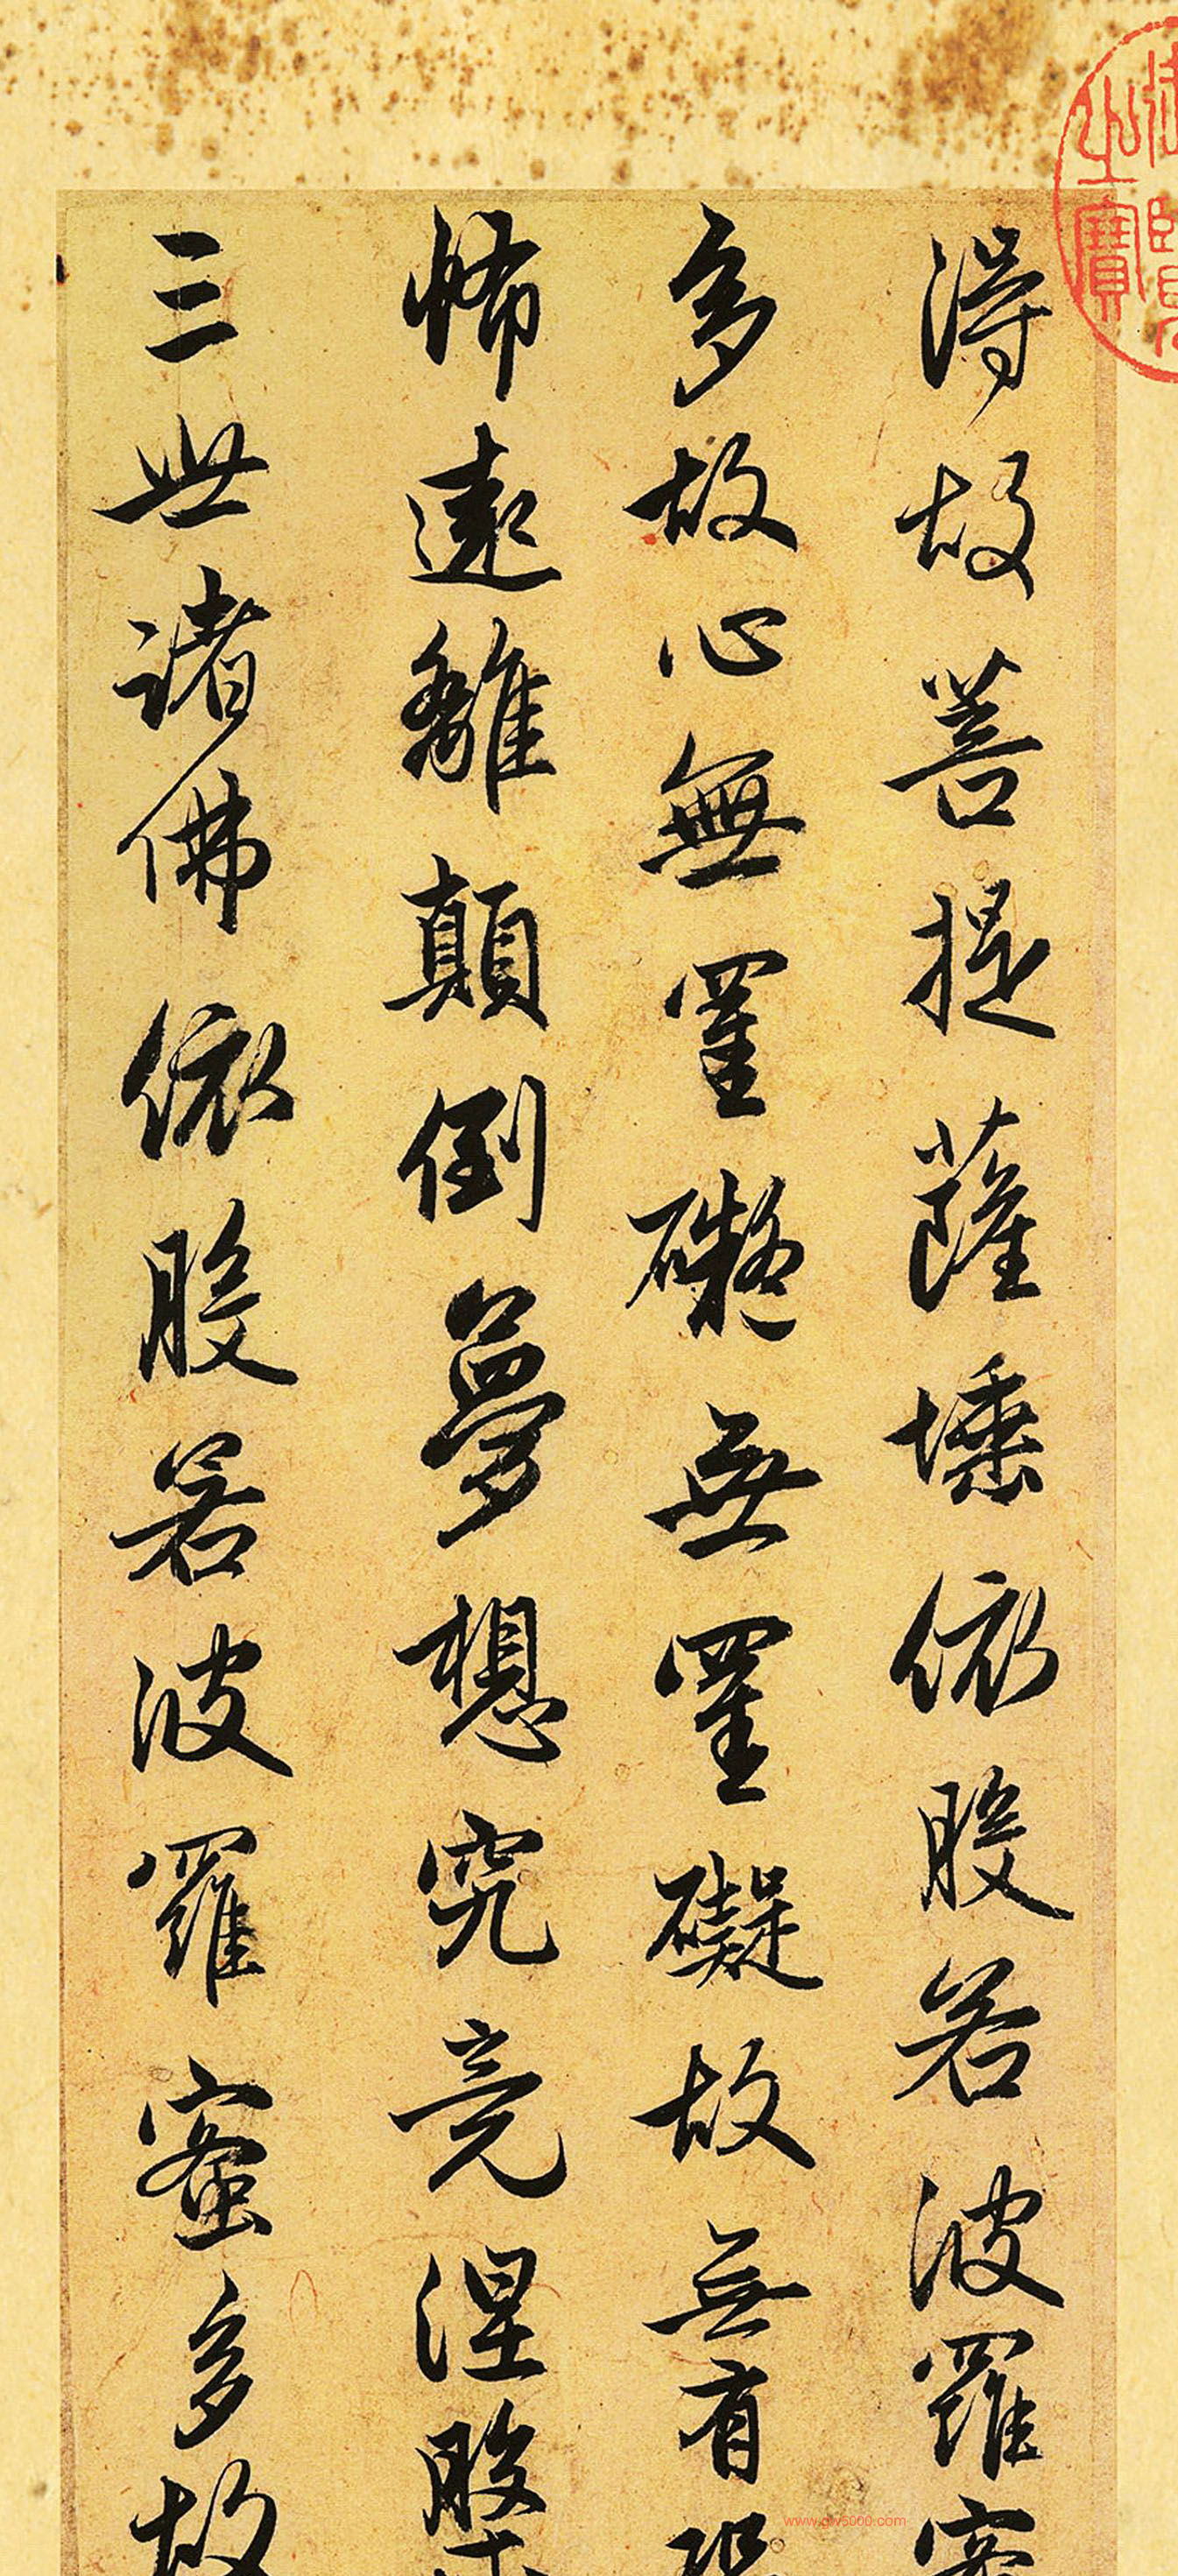 得故菩提薩埵依般若波羅蜜
多故心無罣礙無罣礙故無有恐
怖遠離顛倒夢想究竟涅槃
三世諸佛依般若波羅蜜多故
之寶
www.gw5000.com